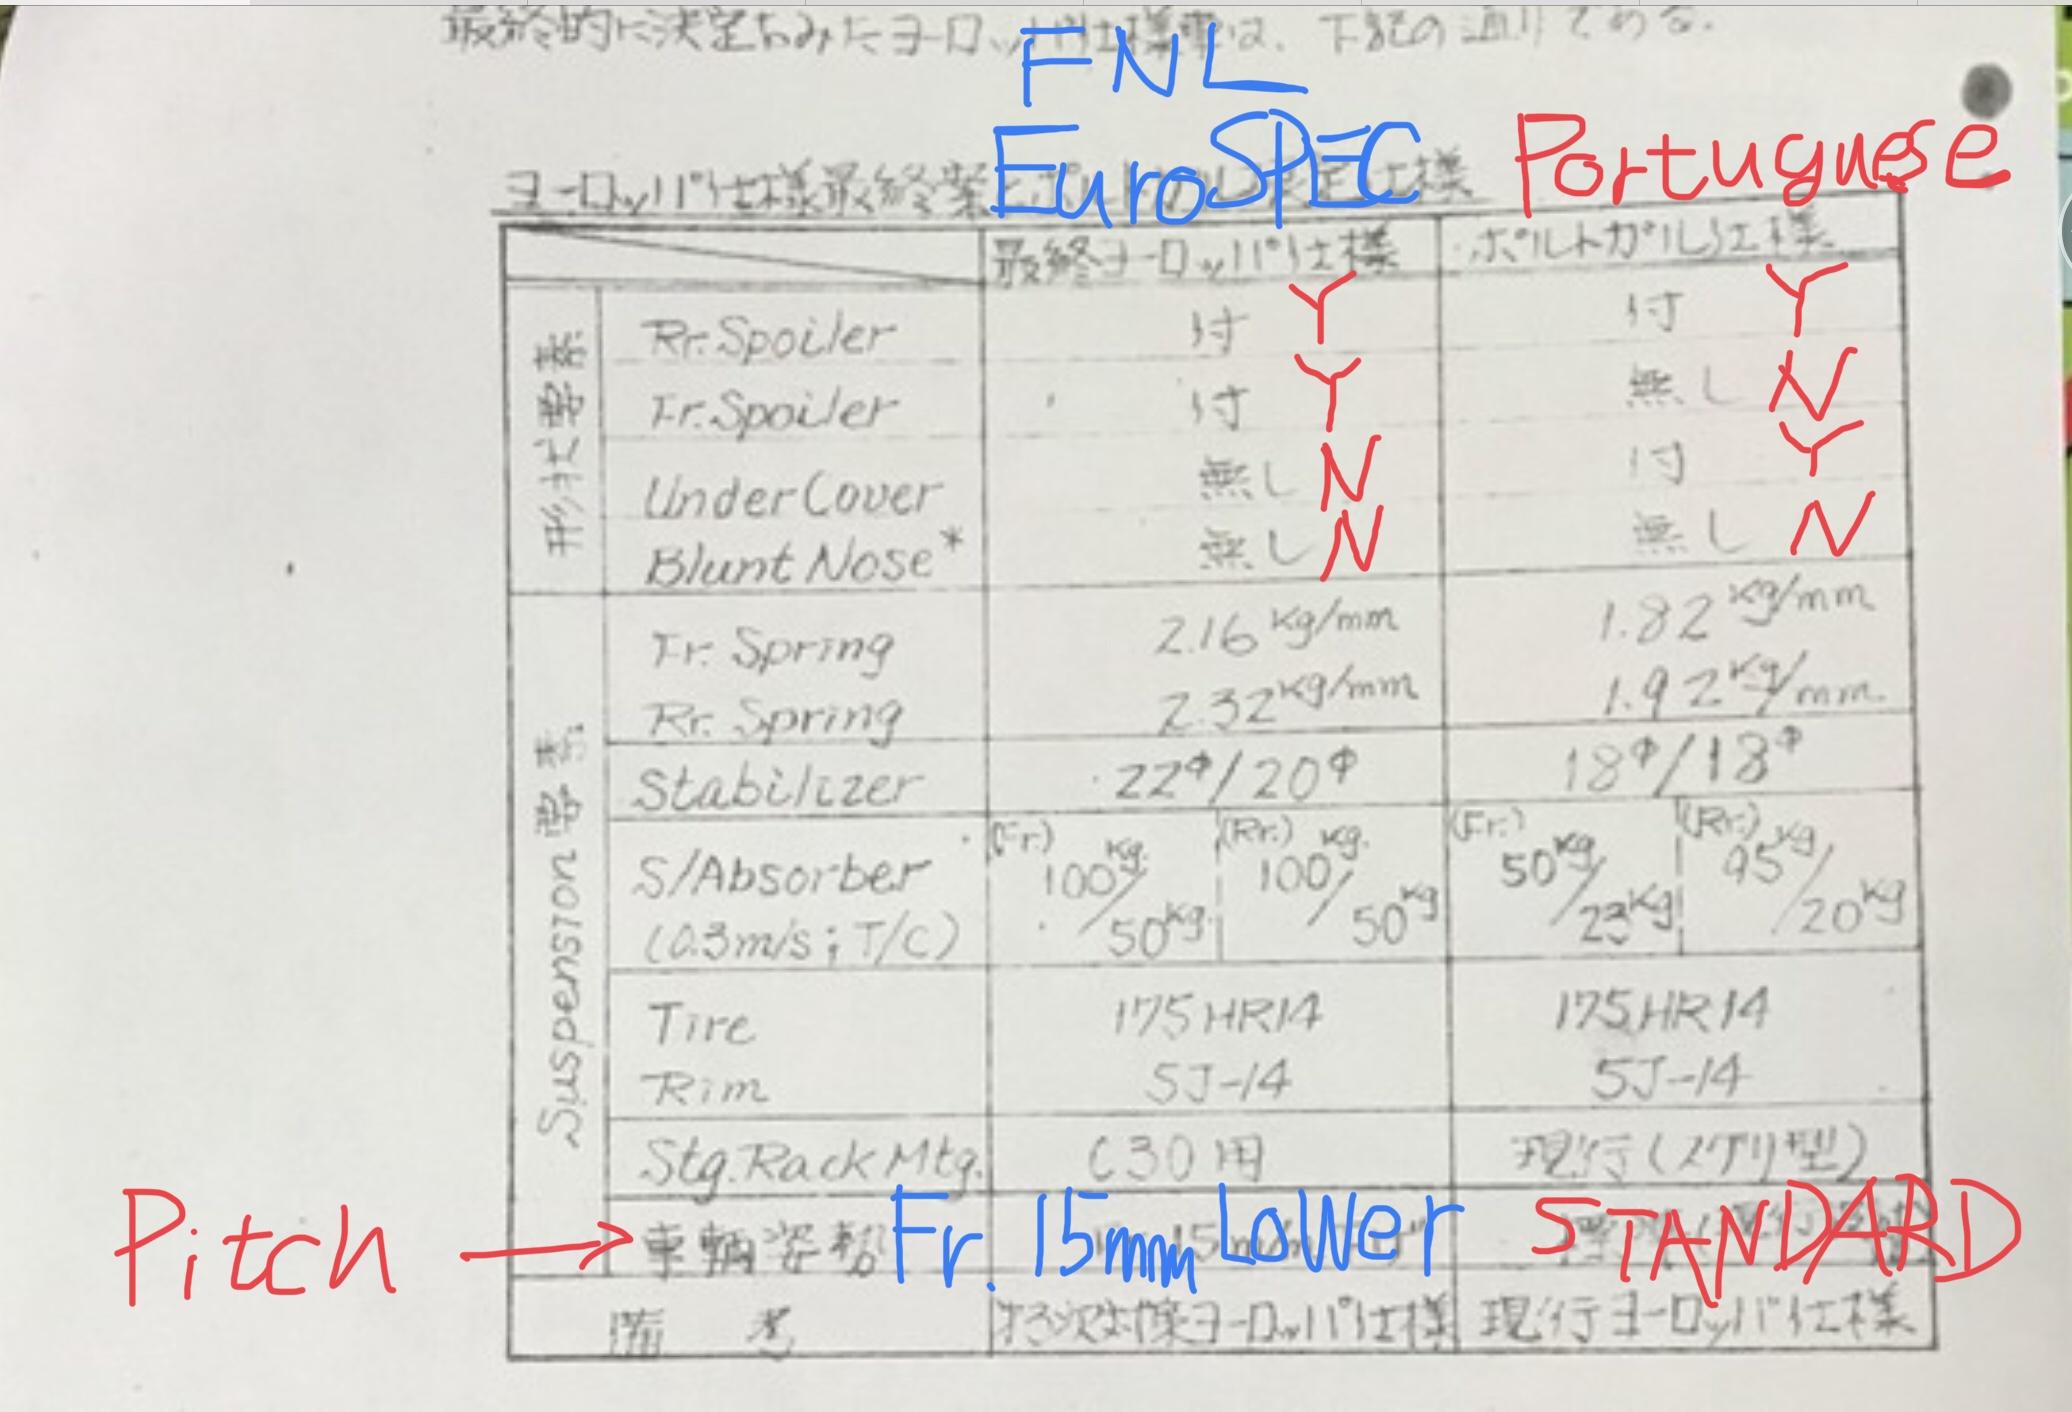 最終的に決定されたヨーロッパ仕様車は、下記の通りである.
FNL
EuroSPEC Portuguese
ヨーロッパ仕様最終案と 仕様
最終ヨーロッパ仕様 ポルトガル仕様
形状要素
Rr. Spoiler 付 Y 付 Y
Fr. Spoiler 付 Y 無し N
Under Cover 無し N 付 Y
Blunt Nose* 無し N 無し N
Suspension要素
Fr. Spring 2.16 Kg/mm 1.82 Kg/mm
Rr. Spring 2.32 Kg/mm 1.92 Kg/mm
Stabilizer 22φ/20φ 18φ/18φ
S/Absorber (Fr.) 100Kg/50Kg (Rr.) 100Kg/50Kg (Fr.) 50Kg/23Kg (Rr.) 95Kg/20Kg
(0.3m/s; T/C)
Tire 175HR14 175HR14
Rim 5J-14 5J-14
Stg. Rack Mtg. C30用 現行
Pitch → 車輌姿勢 Fr. 15mm Lower STANDARD
備考 ヨーロッパ仕様 現行ヨーロッパ仕様